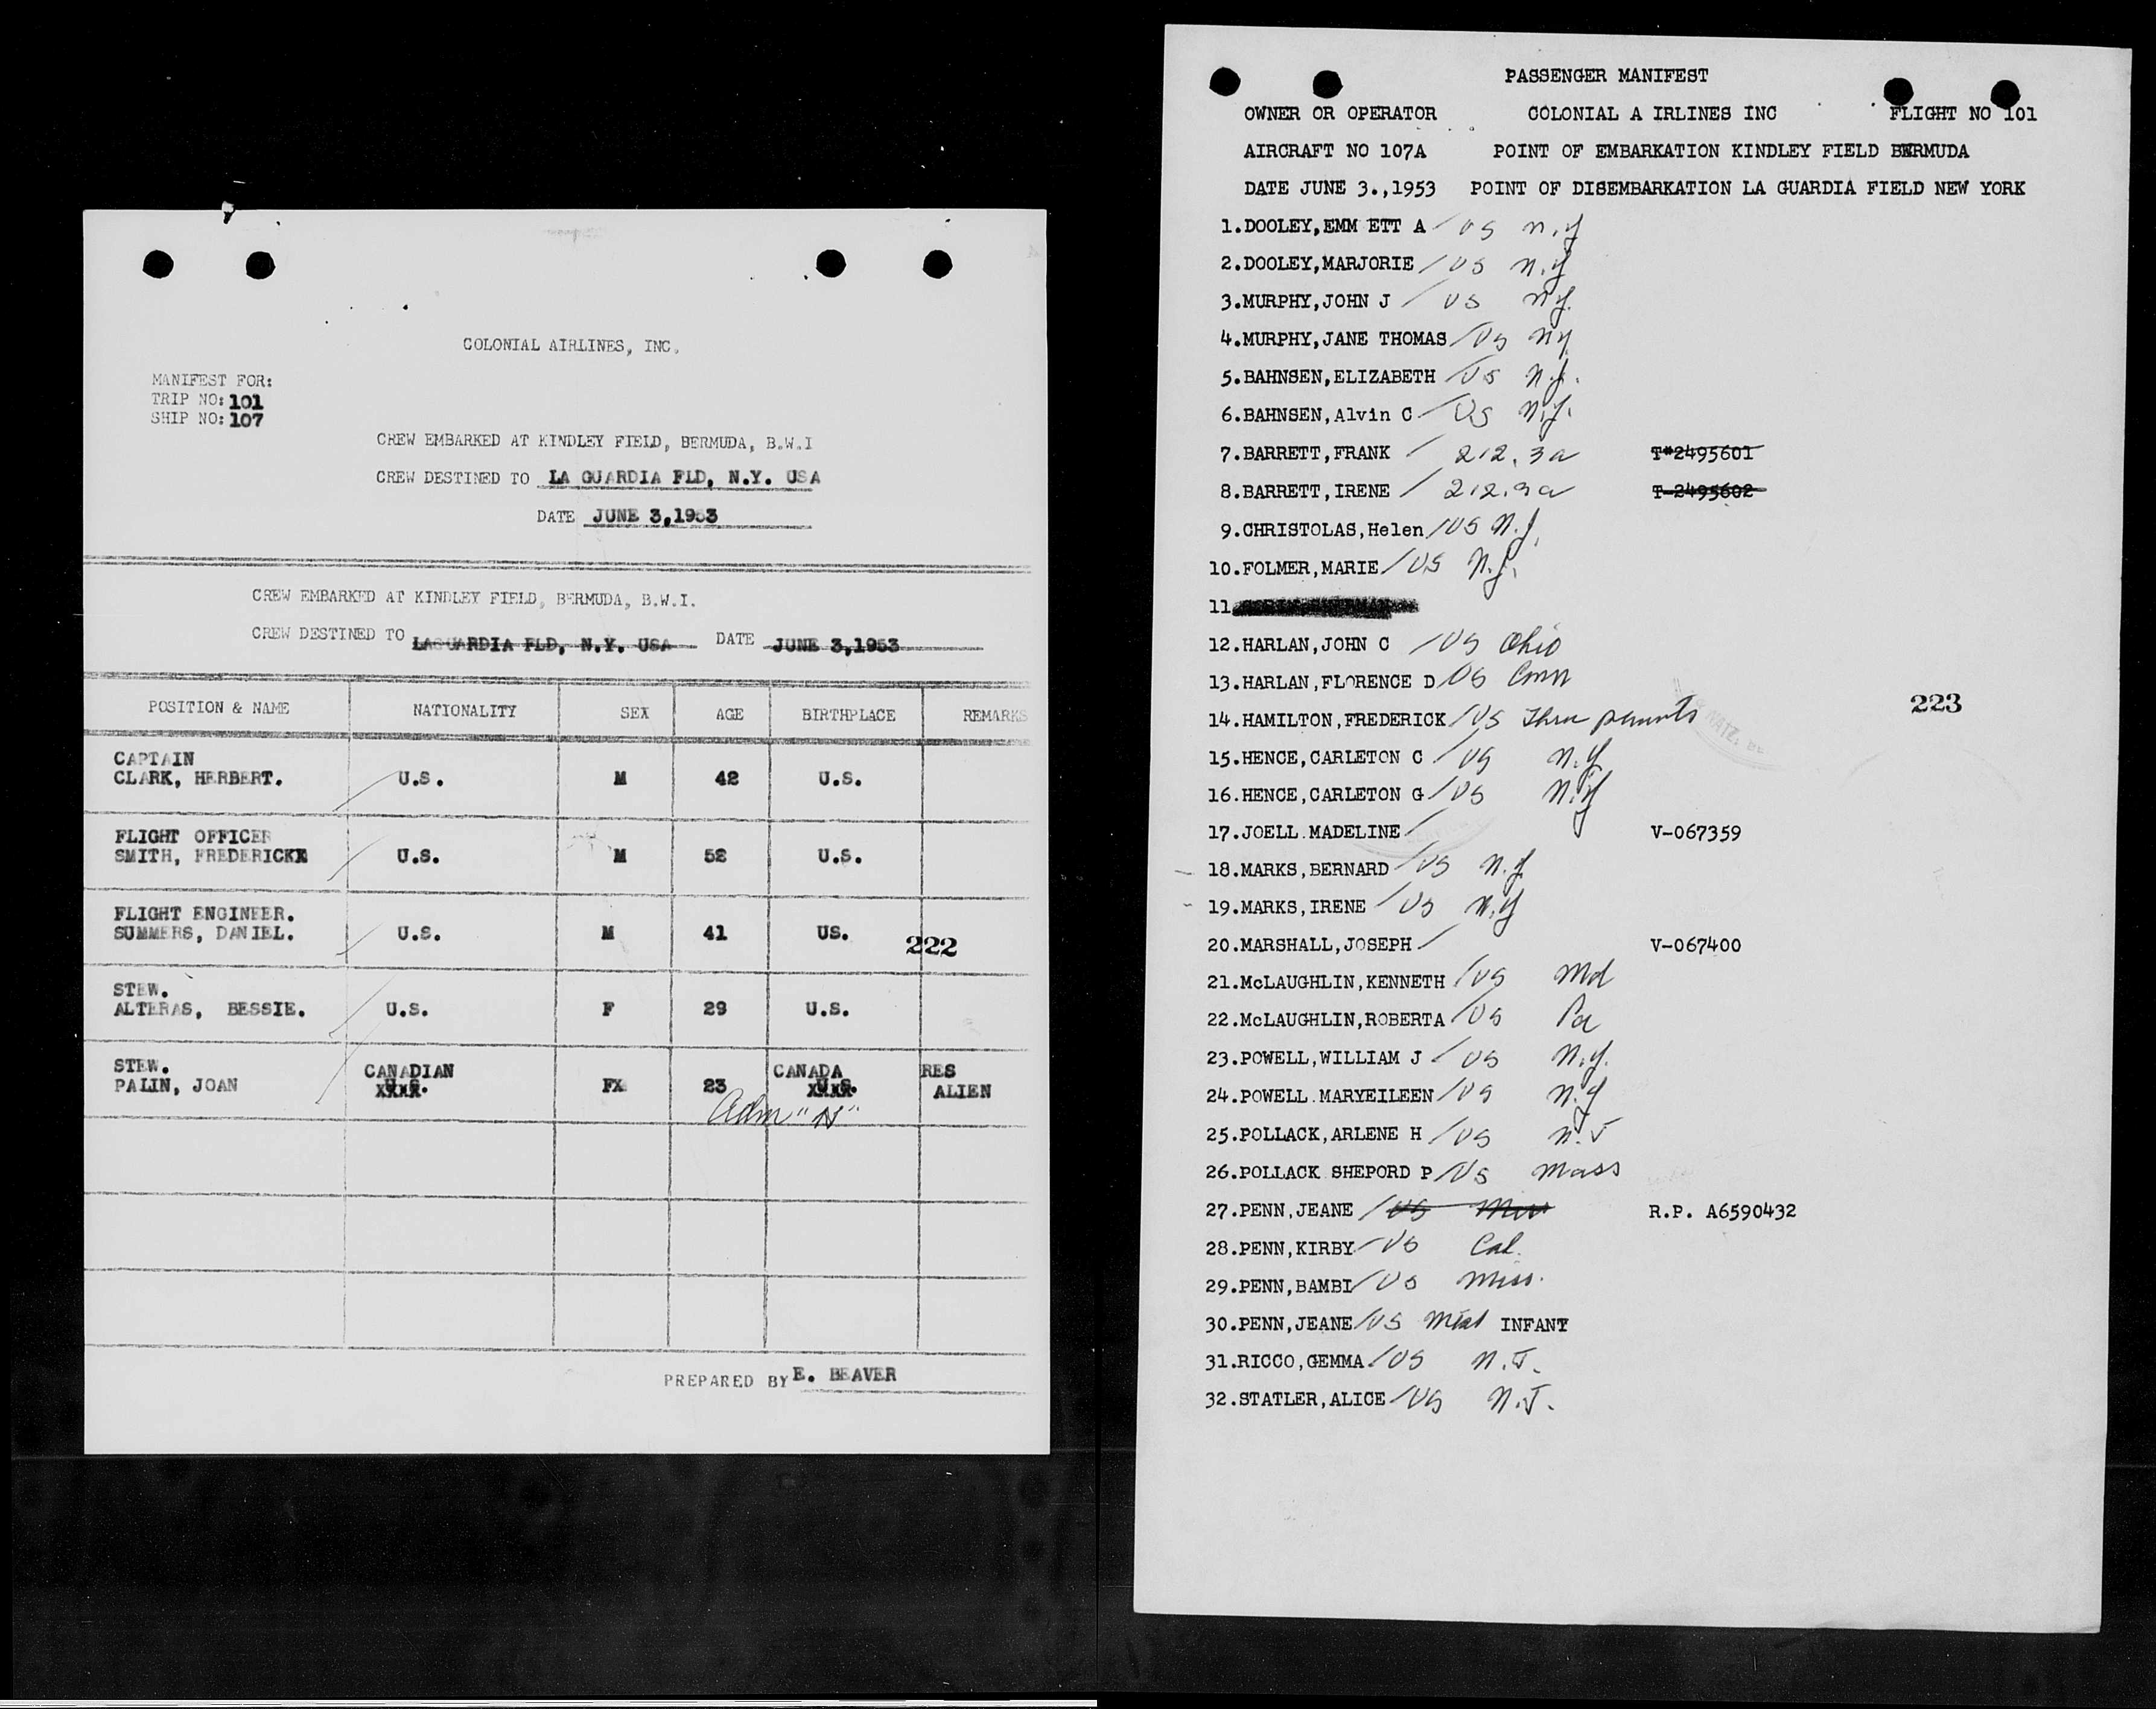 COLONIAL AIRLINES, INC.
MANIFEST FOR:
TRIP NO: 101
SHIP NO: 107
CREW EMBARKED AT KINDLEY FIELD, BERMUDA, B.W.I
CREW DESTINED TO LA GUARDIA FLD, N.Y. USA
DATE JUNE 3,1953
CREW EMBARKED AT KINDLEY FIELD, BERMUDA, B.W.I.
CREW DESTINED TO LAGUARDIA FLD, N.Y. USA DATE JUNE 3,1953
POSITION & NAME NATIONALITY SEX AGE BIRTHPLACE REMARKS
CAPTAIN
CLARK, HERBERT. U.S. M 42 U.S.
FLIGHT OFFICER
SMITH, FREDERICK U.S. M 52 U.S.
FLIGHT ENGINEER.
SUMMERS, DANIEL. U.S. M 41 US.
222
STEW.
ALTERAS, BESSIE. U.S. F 29 U.S.
STEW. CANADIAN CANADA RES
PALIN, JOAN U.S. FX 23 U.S. ALIEN
Adm "N"
PREPARED BY E. BEAVER
PASSENGER MANIFEST
OWNER OR OPERATOR COLONIAL A IRLINES INC FLIGHT NO 101
AIRCRAFT NO 107A POINT OF EMBARKATION KINDLEY FIELD BERMUDA
DATE JUNE 3.,1953 POINT OF DISEMBARKATION LA GUARDIA FIELD NEW YORK
1.DOOLEY,EMM ETT A / US N.Y
2.DOOLEY,MARJORIE / US N.Y
3.MURPHY,JOHN J / US NY.
4.MURPHY,JANE THOMAS / US NY
5.BAHNSEN,ELIZABETH / US N.J.
6.BAHNSEN,Alvin C / US N.J.
7.BARRETT,FRANK / 212.3a T#2495601
8.BARRETT,IRENE / 212.3a T-2495602
9.CHRISTOLAS,Helen / US N.J.
10.FOLMER,MARIE / US N.J.
11.
12.HARLAN,JOHN C / US Ohio
13.HARLAN,FLORENCE D US Conn
14.HAMILTON,FREDERICK / US Thru parents
223
15.HENCE,CARLETON C / US N.Y
16.HENCE,CARLETON G / US N.Y
17.JOELL.MADELINE / V-067359
18.MARKS,BERNARD / US N.Y
19.MARKS,IRENE / US N.Y
20.MARSHALL,JOSEPH / V-067400
21.McLAUGHLIN,KENNETH / US Md
22.McLAUGHLIN,ROBERTA / US Pa
23.POWELL,WILLIAM J / US N.Y.
24.POWELL.MARYEILEEN / US N.Y
25.POLLACK,ARLENE H / US N.J
26.POLLACK SHEPORD P / US Mass
27.PENN,JEANE / US R.P. A6590432
28.PENN,KIRBY / US Cal.
29.PENN,BAMBI / US Miss.
30.PENN,JEANE / US INFANT
31.RICCO,GEMMA / US N.J.
32.STATLER,ALICE / US N.J.